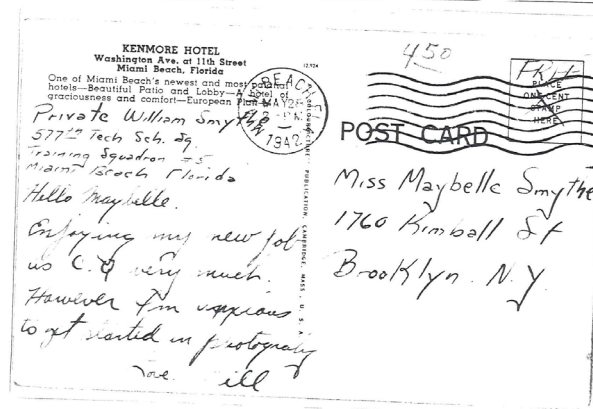 KENMORE HOTEL
Washington Ave. at 11th Street
Miami Beach, Florida
One of Miami Beach's newest and most palatial
hotels—Beautiful Patio and Lobby—A hotel of
graciousness and comfort—European Plan
Private William Smythe
577th Tech Sch. Sq.
Training Squadron #5
Miami Beach Florida
Hello Maybelle.
Enjoying my new job
as C.Q very much.
However I'm anxious
to get started in photography
Love Bill
12,924
BEACH, F
MAY 28
PM
1942
PUBLICATION, CAMBRIDGE, MASS., U.S.A.
450
FREE
PLACE
ONE CENT
STAMP
HERE
POST CARD
Miss Maybelle Smythe
1760 Kimball St
Brooklyn. N.Y.